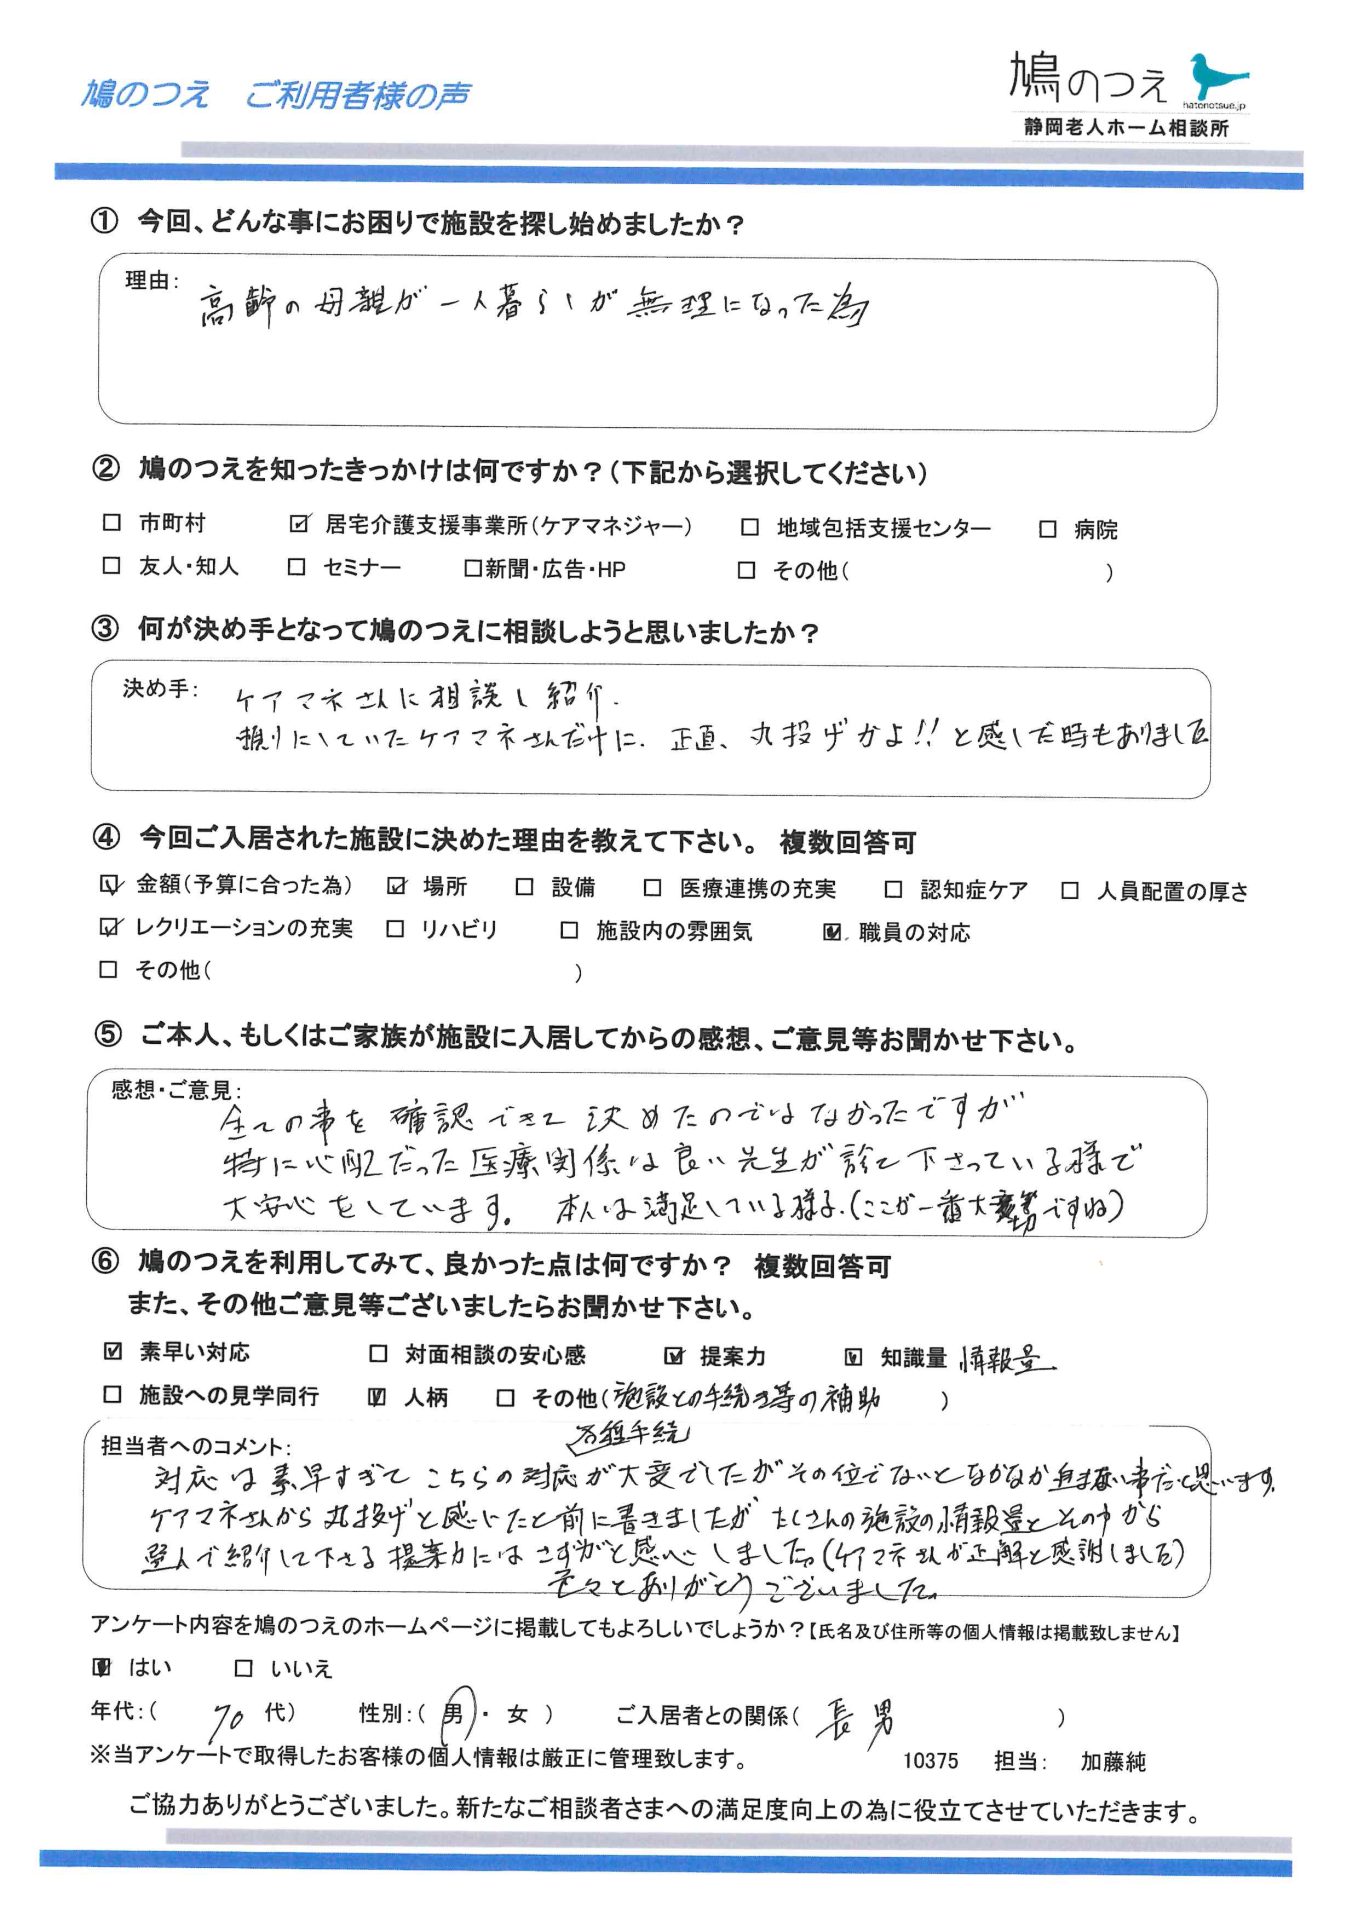 鳩のつえ　ご利用者様の声
鳩のつえ
hatonotsue.jp
静岡老人ホーム相談所
① 今回、どんな事にお困りで施設を探し始めましたか？
理由：
高齢の母親が一人暮らしが無理になった為
② 鳩のつえを知ったきっかけは何ですか？（下記から選択してください）
□ 市町村　☑ 居宅介護支援事業所（ケアマネジャー）　□ 地域包括支援センター　□ 病院
□ 友人・知人　□ セミナー　□新聞・広告・HP　□ その他（　　　）
③ 何が決め手となって鳩のつえに相談しようと思いましたか？
決め手：
ケアマネさんに相談し紹介.
頼りにしていたケアマネさんだけに、正直、丸投げかよ!!と感じた時もありました
④ 今回ご入居された施設に決めた理由を教えて下さい。 複数回答可
☑ 金額（予算に合った為）　☑ 場所　□ 設備　□ 医療連携の充実　□ 認知症ケア　□ 人員配置の厚さ
☑ レクリエーションの充実　□ リハビリ　□ 施設内の雰囲気　☑ 職員の対応
□ その他（　　　）
⑤ ご本人、もしくはご家族が施設に入居してからの感想、ご意見等お聞かせ下さい。
感想・ご意見：
全ての事を確認できて決めたのではなかったですが
特に心配だった医療関係は良い先生が診て下さっている様で
大安心をしています。 本人は満足している様子.（ここが一番大切ですね）
⑥ 鳩のつえを利用してみて、良かった点は何ですか？ 複数回答可
また、その他ご意見等ございましたらお聞かせ下さい。
☑ 素早い対応　□ 対面相談の安心感　☑ 提案力　☑ 知識量 情報量
□ 施設への見学同行　☑ 人柄　□ その他（施設との手続き等の補助　）
担当者へのコメント：
各種手続
対応は素早すぎてこちらの対応が大変でしたがその位でないとなかなか 事だと思います.
ケアマネさんから丸投げと感じたと前に書きましたがたくさんの施設の情報量とその中から
選んで紹介して下さる提案力にはさすがと感心しました。（ケアマネさんが正解と感謝しました）
色々とありがとうございました。
アンケート内容を鳩のつえのホームページに掲載してもよろしいでしょうか？【氏名及び住所等の個人情報は掲載致しません】
☑ はい　□ いいえ
年代：（　70 代）　性別：（ 男 ・ 女 ）　ご入居者との関係（ 長男　）
※当アンケートで取得したお客様の個人情報は厳正に管理致します。　10375　担当：　加藤純
ご協力ありがとうございました。新たなご相談者さまへの満足度向上の為に役立てさせていただきます。